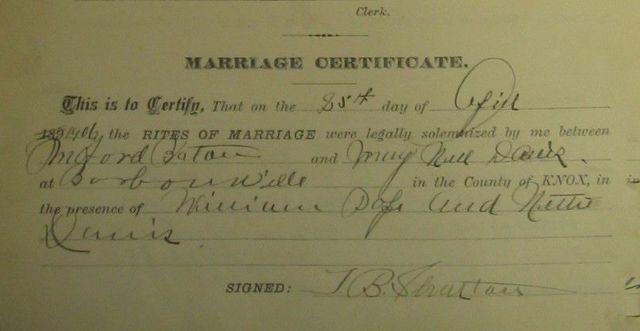 Clerk.
MARRIAGE CERTIFICATE.
This is to Certify, That on the 25th day of April
1906, the RITES OF MARRIAGE were legally solemnized by me between
and Nell Davis.
at in the County of KNOX, in
the presence of William and Nettie
Davis
SIGNED: J. B. Stratton